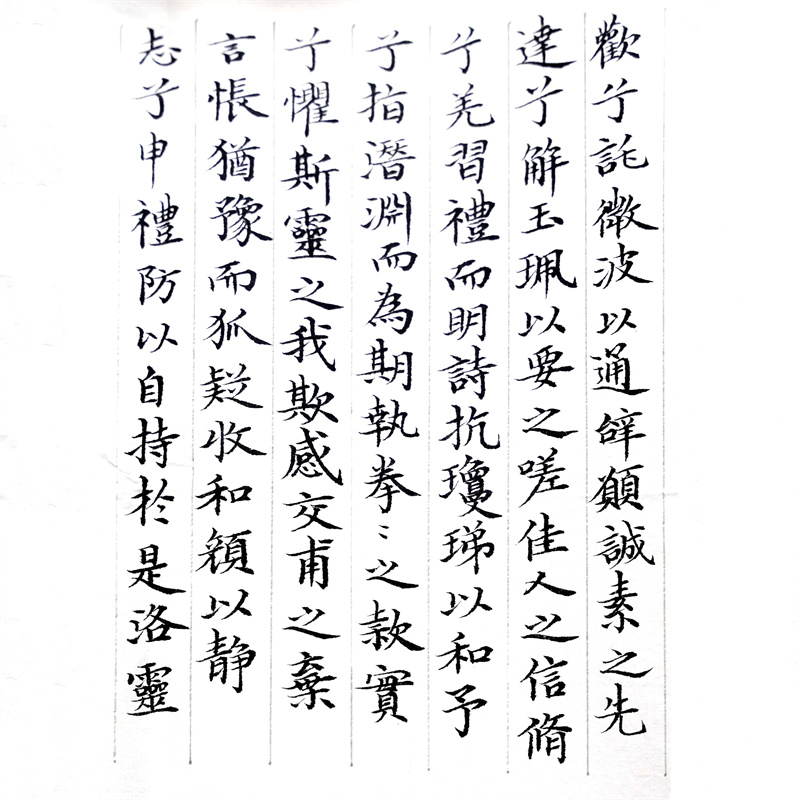 歡兮託微波以通辝願誠素之先
達兮解玉珮以要之嗟佳人之信脩
兮羌習禮而明詩抗瓊珶以和予
兮指潛淵而為期執拳〻之款實
兮懼斯靈之我欺感交甫之棄
言悵猶豫而狐疑收和顏以静
志兮申禮防以自持於是洛靈